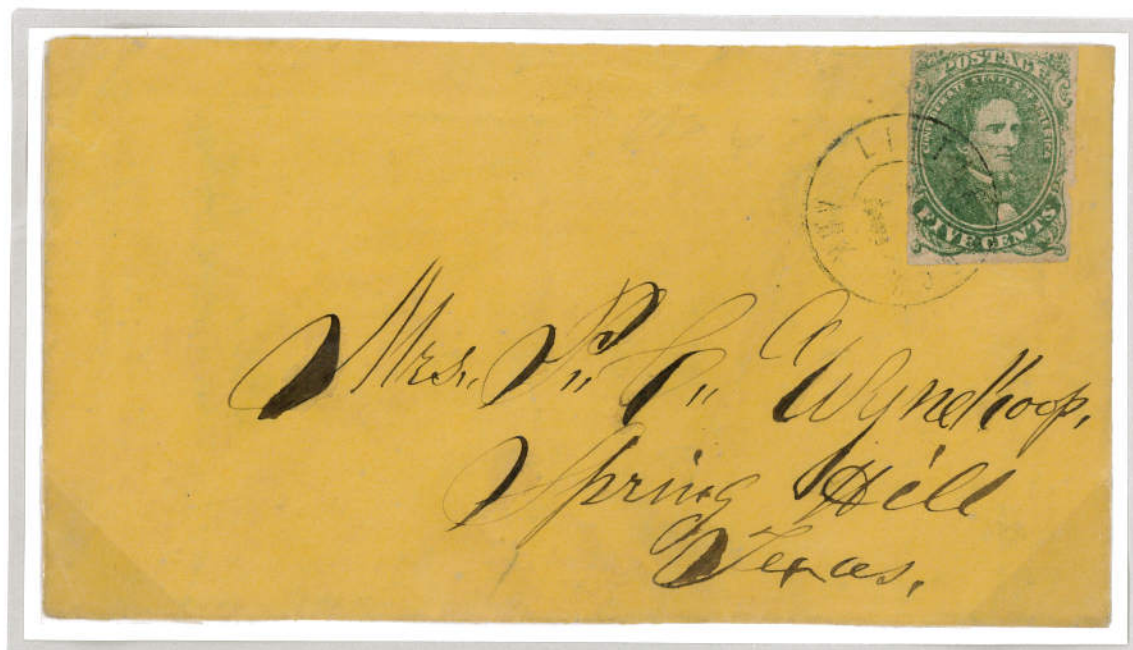 POSTAGE
CONFEDERATE STATES OF AMERICA
FIVE CENTS
ARK
Mrs. P. C. Wyndkoop,
Spring Hill
Texas.